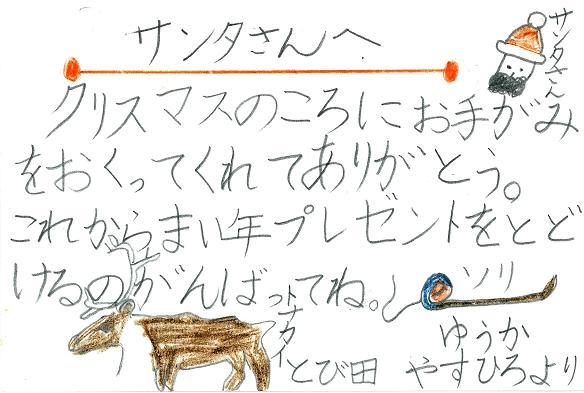 サンタさんへ
サンタさん
クリスマスのころにお手がみ
をおくってくれてありがとう。
これからまい年プレゼントをとど
けるのがんばってね。
ソリ
トナカイ
とび田
ゆうか
やすひろより